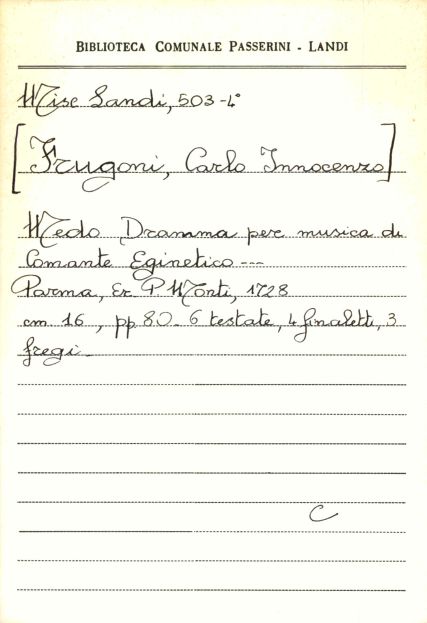 BIBLIOTECA COMUNALE PASSERINI - LANDI
Misc Landi, 503-4°
[Frugoni, Carlo Innocenzo]
Medo Dramma per musica di
Comante Eginetico ---
Parma, Er. P. Monti, 1728
cm 16, pp 80 - 6 testate, 4 finaletti, 3
fregi -
C